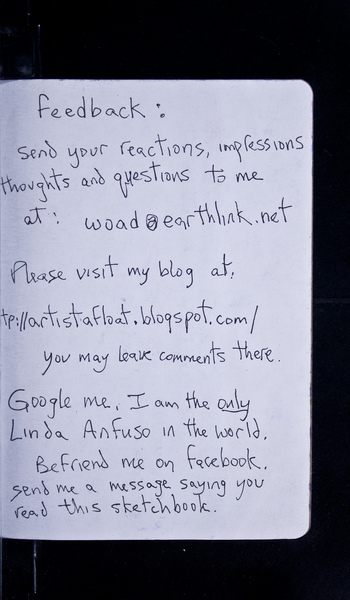 Feedback:
Send your reactions, impressions
thoughts and questions to me
at: woad@earthlink.net
Please visit my blog at:
tp://artistafloat.blogspot.com/
you may leave comments there.
Google me. I am the only
Linda Anfuso in the world.
Befriend me on facebook.
send me a message saying you
read this sketchbook.